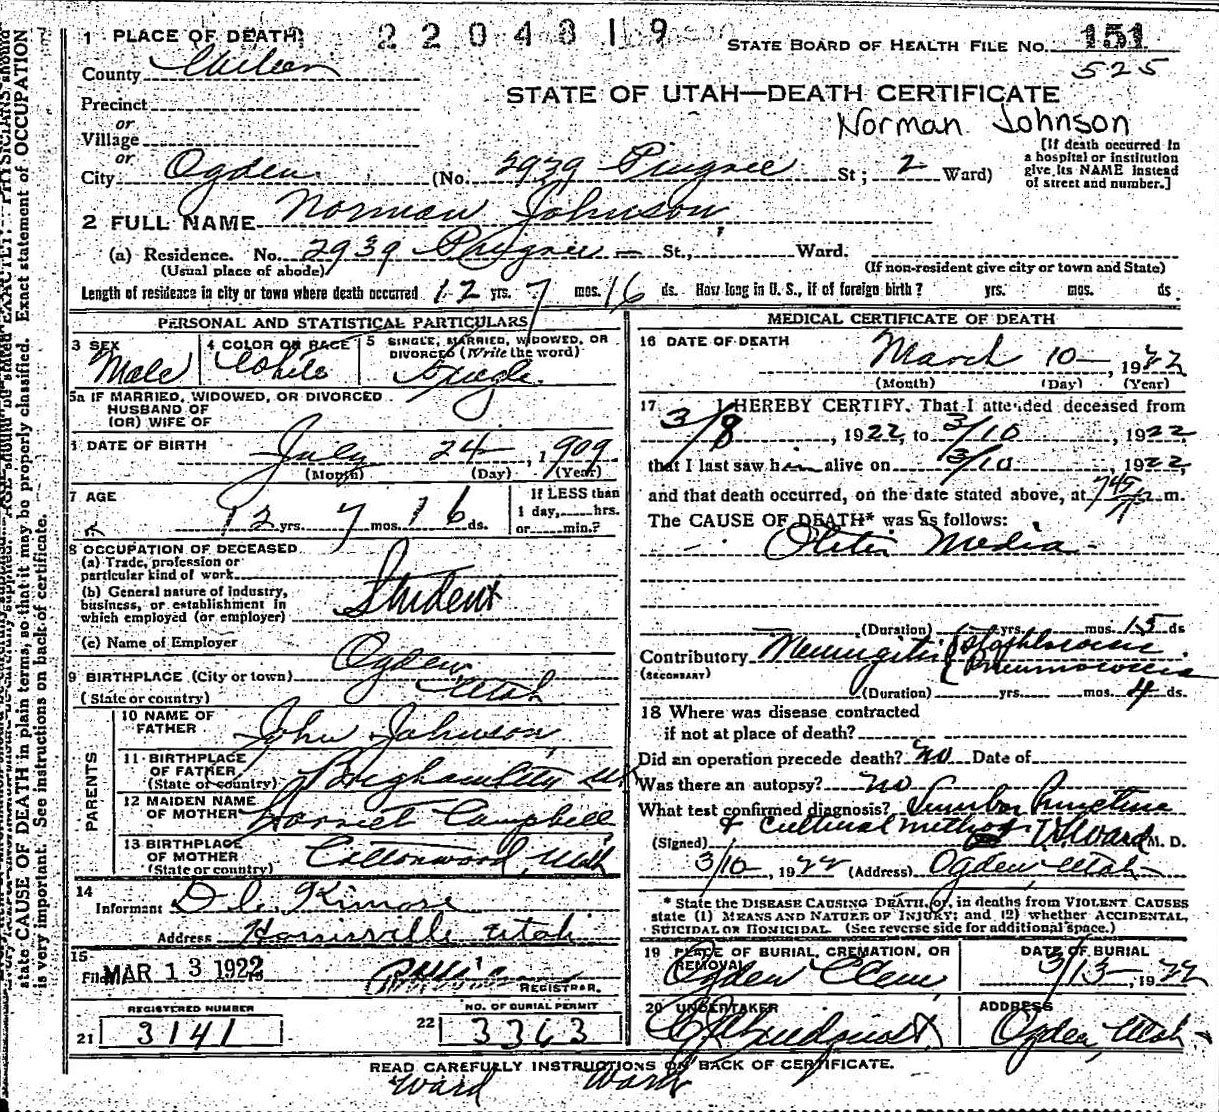 1 PLACE OF DEATH: 2204819 STATE BOARD OF HEALTH FILE NO. 151
County Weber 525
STATE OF UTAH—DEATH CERTIFICATE
Precinct
or
Norman Johnson
Village
or
City Ogden (No. 2939 Pingree St; 2 Ward)
[If death occurred in
a hospital or institution
give its NAME instead
of street and number.]
2 FULL NAME Norman Johnson
(a) Residence. No. 2939 Pingree St., Ward.
(Usual place of abode) (If non-resident give city or town and State)
Length of residence in city or town where death occurred 12 yrs. 7 mos. 16 ds. How long in U. S., if of foreign birth? yrs. mos. ds.
PERSONAL AND STATISTICAL PARTICULARS
3 SEX Male
4 COLOR OR RACE White
5 SINGLE, MARRIED, WIDOWED, OR
DIVORCED (Write the word)
Single
5a IF MARRIED, WIDOWED, OR DIVORCED
HUSBAND OF
(OR) WIFE OF
DATE OF BIRTH July 24, 1909
(Month) (Day) (Year)
7 AGE 12 yrs. 7 mos. 16 ds.
If LESS than
1 day, hrs.
or min.?
8 OCCUPATION OF DECEASED
(a) Trade, profession or
particular kind of work
(b) General nature of industry,
business, or establishment in
which employed (or employer)
Student
(c) Name of Employer
9 BIRTHPLACE (City or town) Ogden
(State or country) Utah
PARENTS
10 NAME OF
FATHER John Johnson
11 BIRTHPLACE
OF FATHER
(State or country) Brigham City Utah
12 MAIDEN NAME
OF MOTHER Harriet Campbell
13 BIRTHPLACE
OF MOTHER
(State or country) Cottonwood, Utah
14
Informant
Address Harrisville Utah
15
Filed MAR 13 1922
REGISTRAR.
REGISTERED NUMBER
21 3141
NO. OF BURIAL PERMIT
22 3363
MEDICAL CERTIFICATE OF DEATH
16 DATE OF DEATH
March 10, 1922
(Month) (Day) (Year)
17 I HEREBY CERTIFY, That I attended deceased from
3/8, 1922, to 3/10, 1922
that I last saw him alive on 3/10, 1922,
and that death occurred, on the date stated above, at m.
The CAUSE OF DEATH* was as follows:
Otitis Media
(Duration) yrs. mos. 15 ds
Contributory Meningitis
(SECONDARY)
(Duration) yrs. mos. 4 ds.
18 Where was disease contracted
if not at place of death?
Did an operation precede death? no Date of
Was there an autopsy? no
What test confirmed diagnosis? Lumbar Puncture
& Cultural method
(Signed) Ward M. D.
3/10, 1922 (Address) Ogden, Utah
* State the DISEASE CAUSING DEATH, or, in deaths from VIOLENT CAUSES
state (1) MEANS AND NATURE OF INJURY; and (2) whether ACCIDENTAL,
SUICIDAL OR HOMICIDAL. (See reverse side for additional space.)
19 PLACE OF BURIAL, CREMATION, OR
REMOVAL
Ogden Cem.
DATE OF BURIAL
3/13, 1922
20 UNDERTAKER
ADDRESS
Ogden, Utah
READ CAREFULLY INSTRUCTIONS ON BACK OF CERTIFICATE.
Ward Ward
state CAUSE OF DEATH in plain terms, so that it may be properly classified. Exact statement of OCCUPATION
is very important. See instructions on back of certificate.